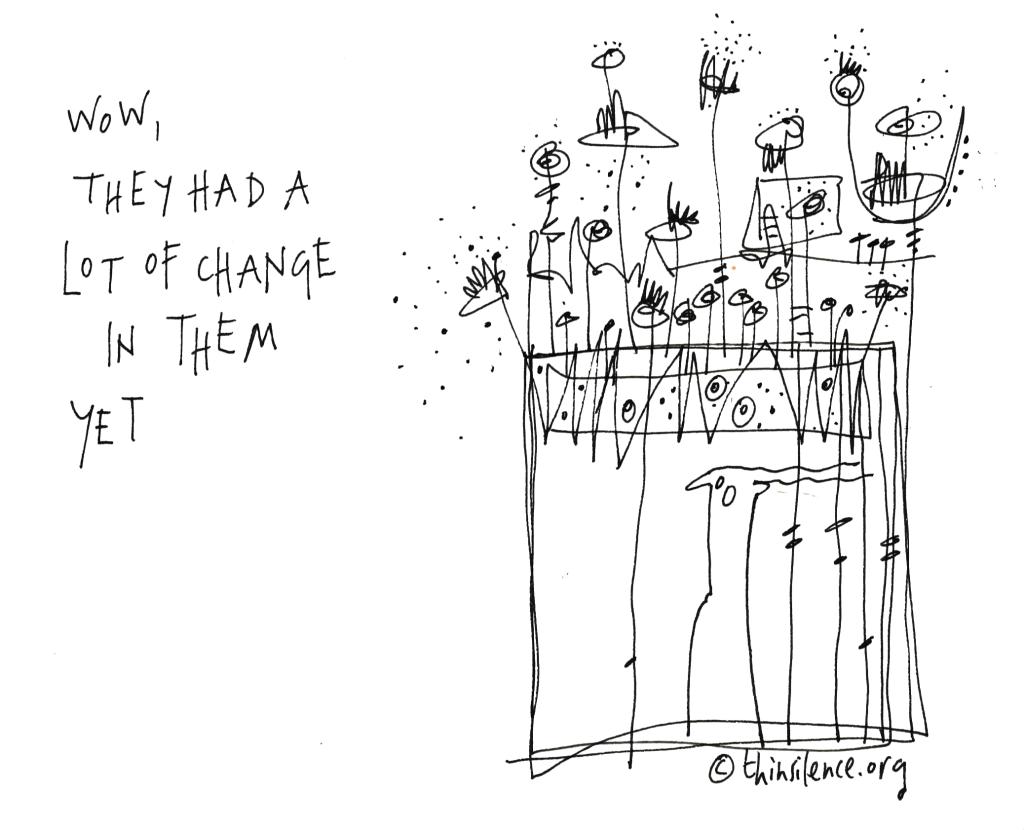 WOW,
THEY HAD A
LOT OF CHANGE
IN THEM
YET
© thinsilence.org